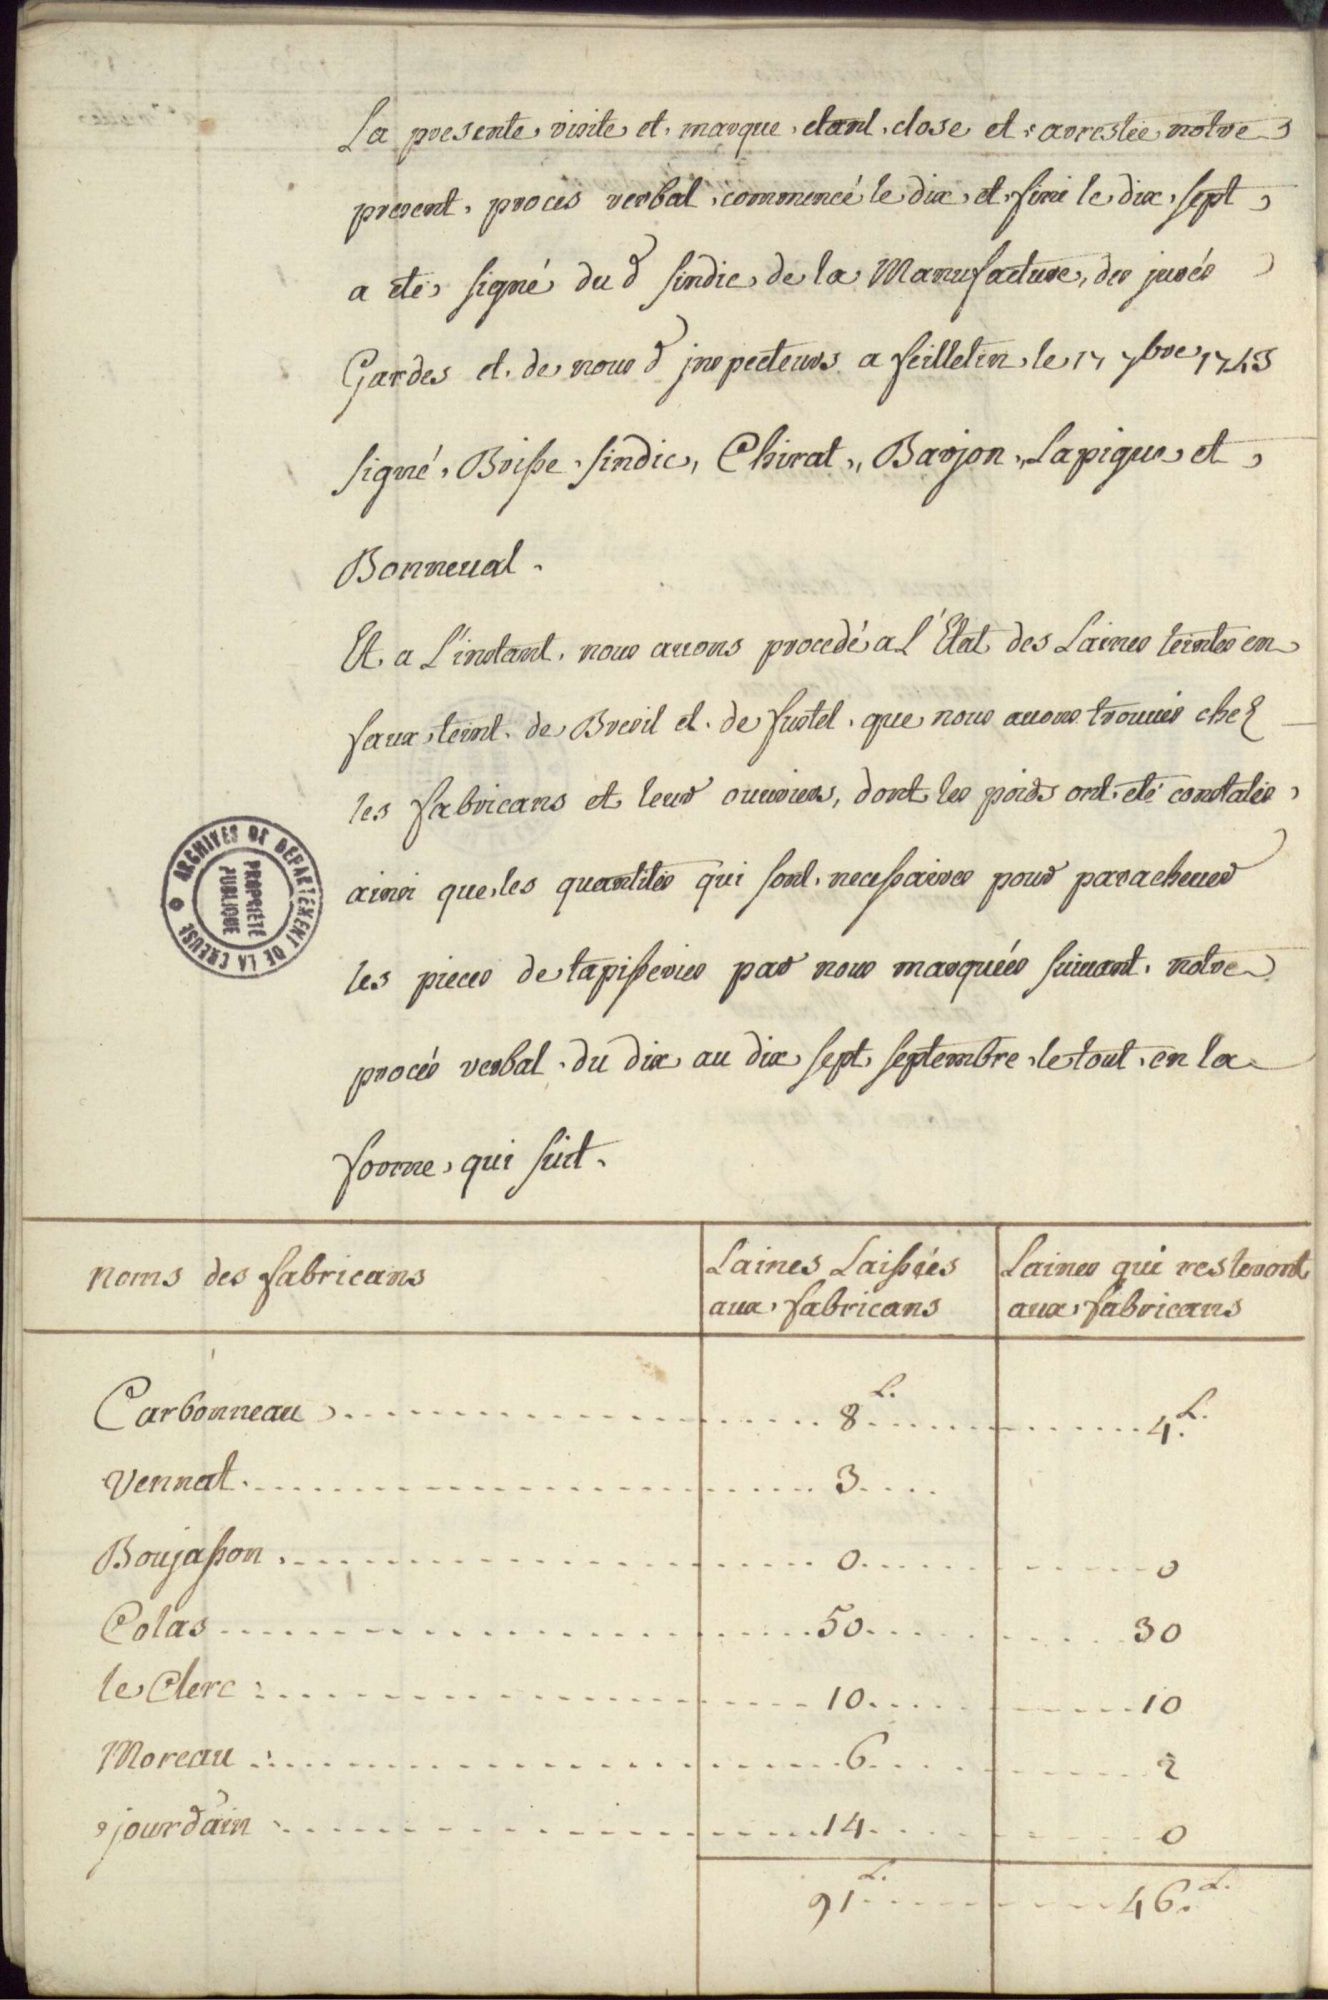 La presente visite et marque etant close et arrestée notre
present proces verbal commencé le dix et fini le dix sept
a eté signé du d sindic de la Manufacture, des jurés
Gardes et de nous d jnspecteurs a feilletin le 17 7bre 1743
signé, Brisse sindic, Chirat, Barjon, Lapique et
Bonneval.
Et a L'instant nous avons procedé a L'Etat des Laines teintes en
faux teint de Bresil et de fustel que nous avons trouvés chez
les fabricans et leurs ouvriers, dont les poids ont eté constatés
ainsi que les quantités qui sont necessaires pour parachever
les pieces de tapisseries par nous marquées suivant notre
procés verbal du dix au dix sept septembre le tout en la
forme qui suit.
noms des fabricans
Laines Laissées aux fabricans
Laines qui resteront aux fabricans
Carbonneau 8 L. 4 L.
Vennat 3
Boujasson 0 0
Colas 50 30
le Clerc 10 10
Moreau 6 2
jourdain 14 0
91 L. 46 L.
ARCHIVES DE DÉPARTEMENT DE LA CREUSE
PROPRIÉTÉ
PUBLIQUE